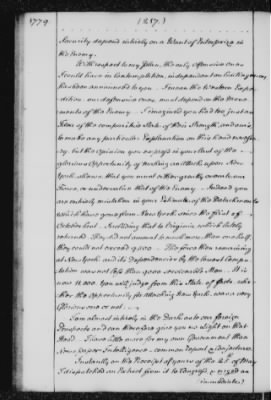 1779
(257.)
Security depend entirely on a Want of Enterprize in
the Enemy.
With respect to my Plan, the only offensive one
I could have in Contemplation, independant on Contingency
has been announced to you. I mean the Western Expe-
dition. our defensive ones, must depend on the Move-
ments of the Enemy. I imagined you had too just an
Idea of the comparative State of their Strength, and ours
to make any particular Explanation on this head necessa-
ry, but the Opinion you express in your last of the
glorious Opportunity of making an Attack upon New
York shews, that you must either greatly overate our
Force, or undervalue that of the Enemy. Indeed you
are entirely mistaken in your Estimate of the Detachments
which have gone from New York since the first of
October last. Including that to Virginia which lately
returned. They did not amount to much more than one half,
they could not exceed 9,500. The force then remaining
at New York and its Dependencies by the lowest Compu-
tation was not less than 9000 serviceable Men. It is
now 11.000 You will judge from this State of facts whe-
ther the Opportunity for attacking New York was a very
Glorious one or not.
I am almost intirely in the Dark as to our foreign
Prospects and can therefore give you no Light on that
Head. I have little more for my own Government than
News paper Intelligence common report & Conjectures.
Instantly on the Receipt of yours of the 25th of May
I dispatched an Extract from it to Congress, & urged an
(immediate)